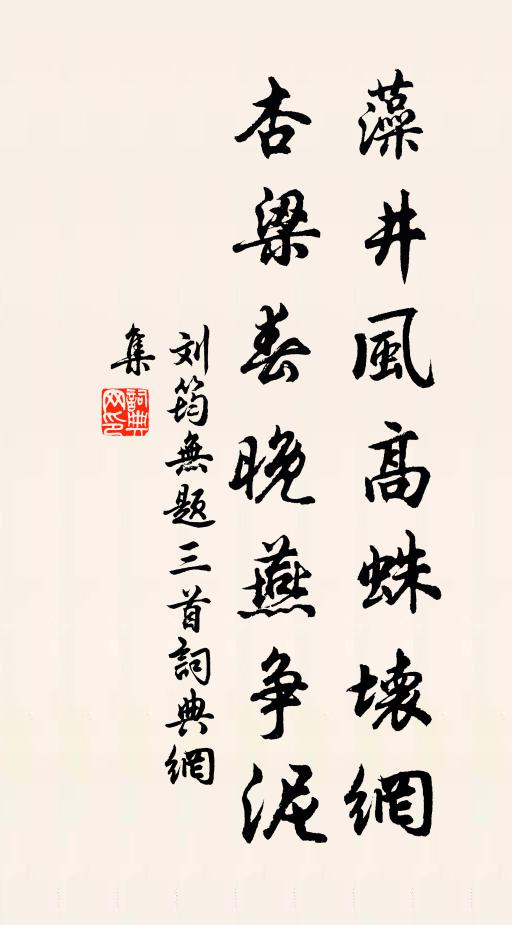 藻井風高蛛壊網
杏梁春晚燕争泥
刘筠無题三首詞典網
集
詞典
网印